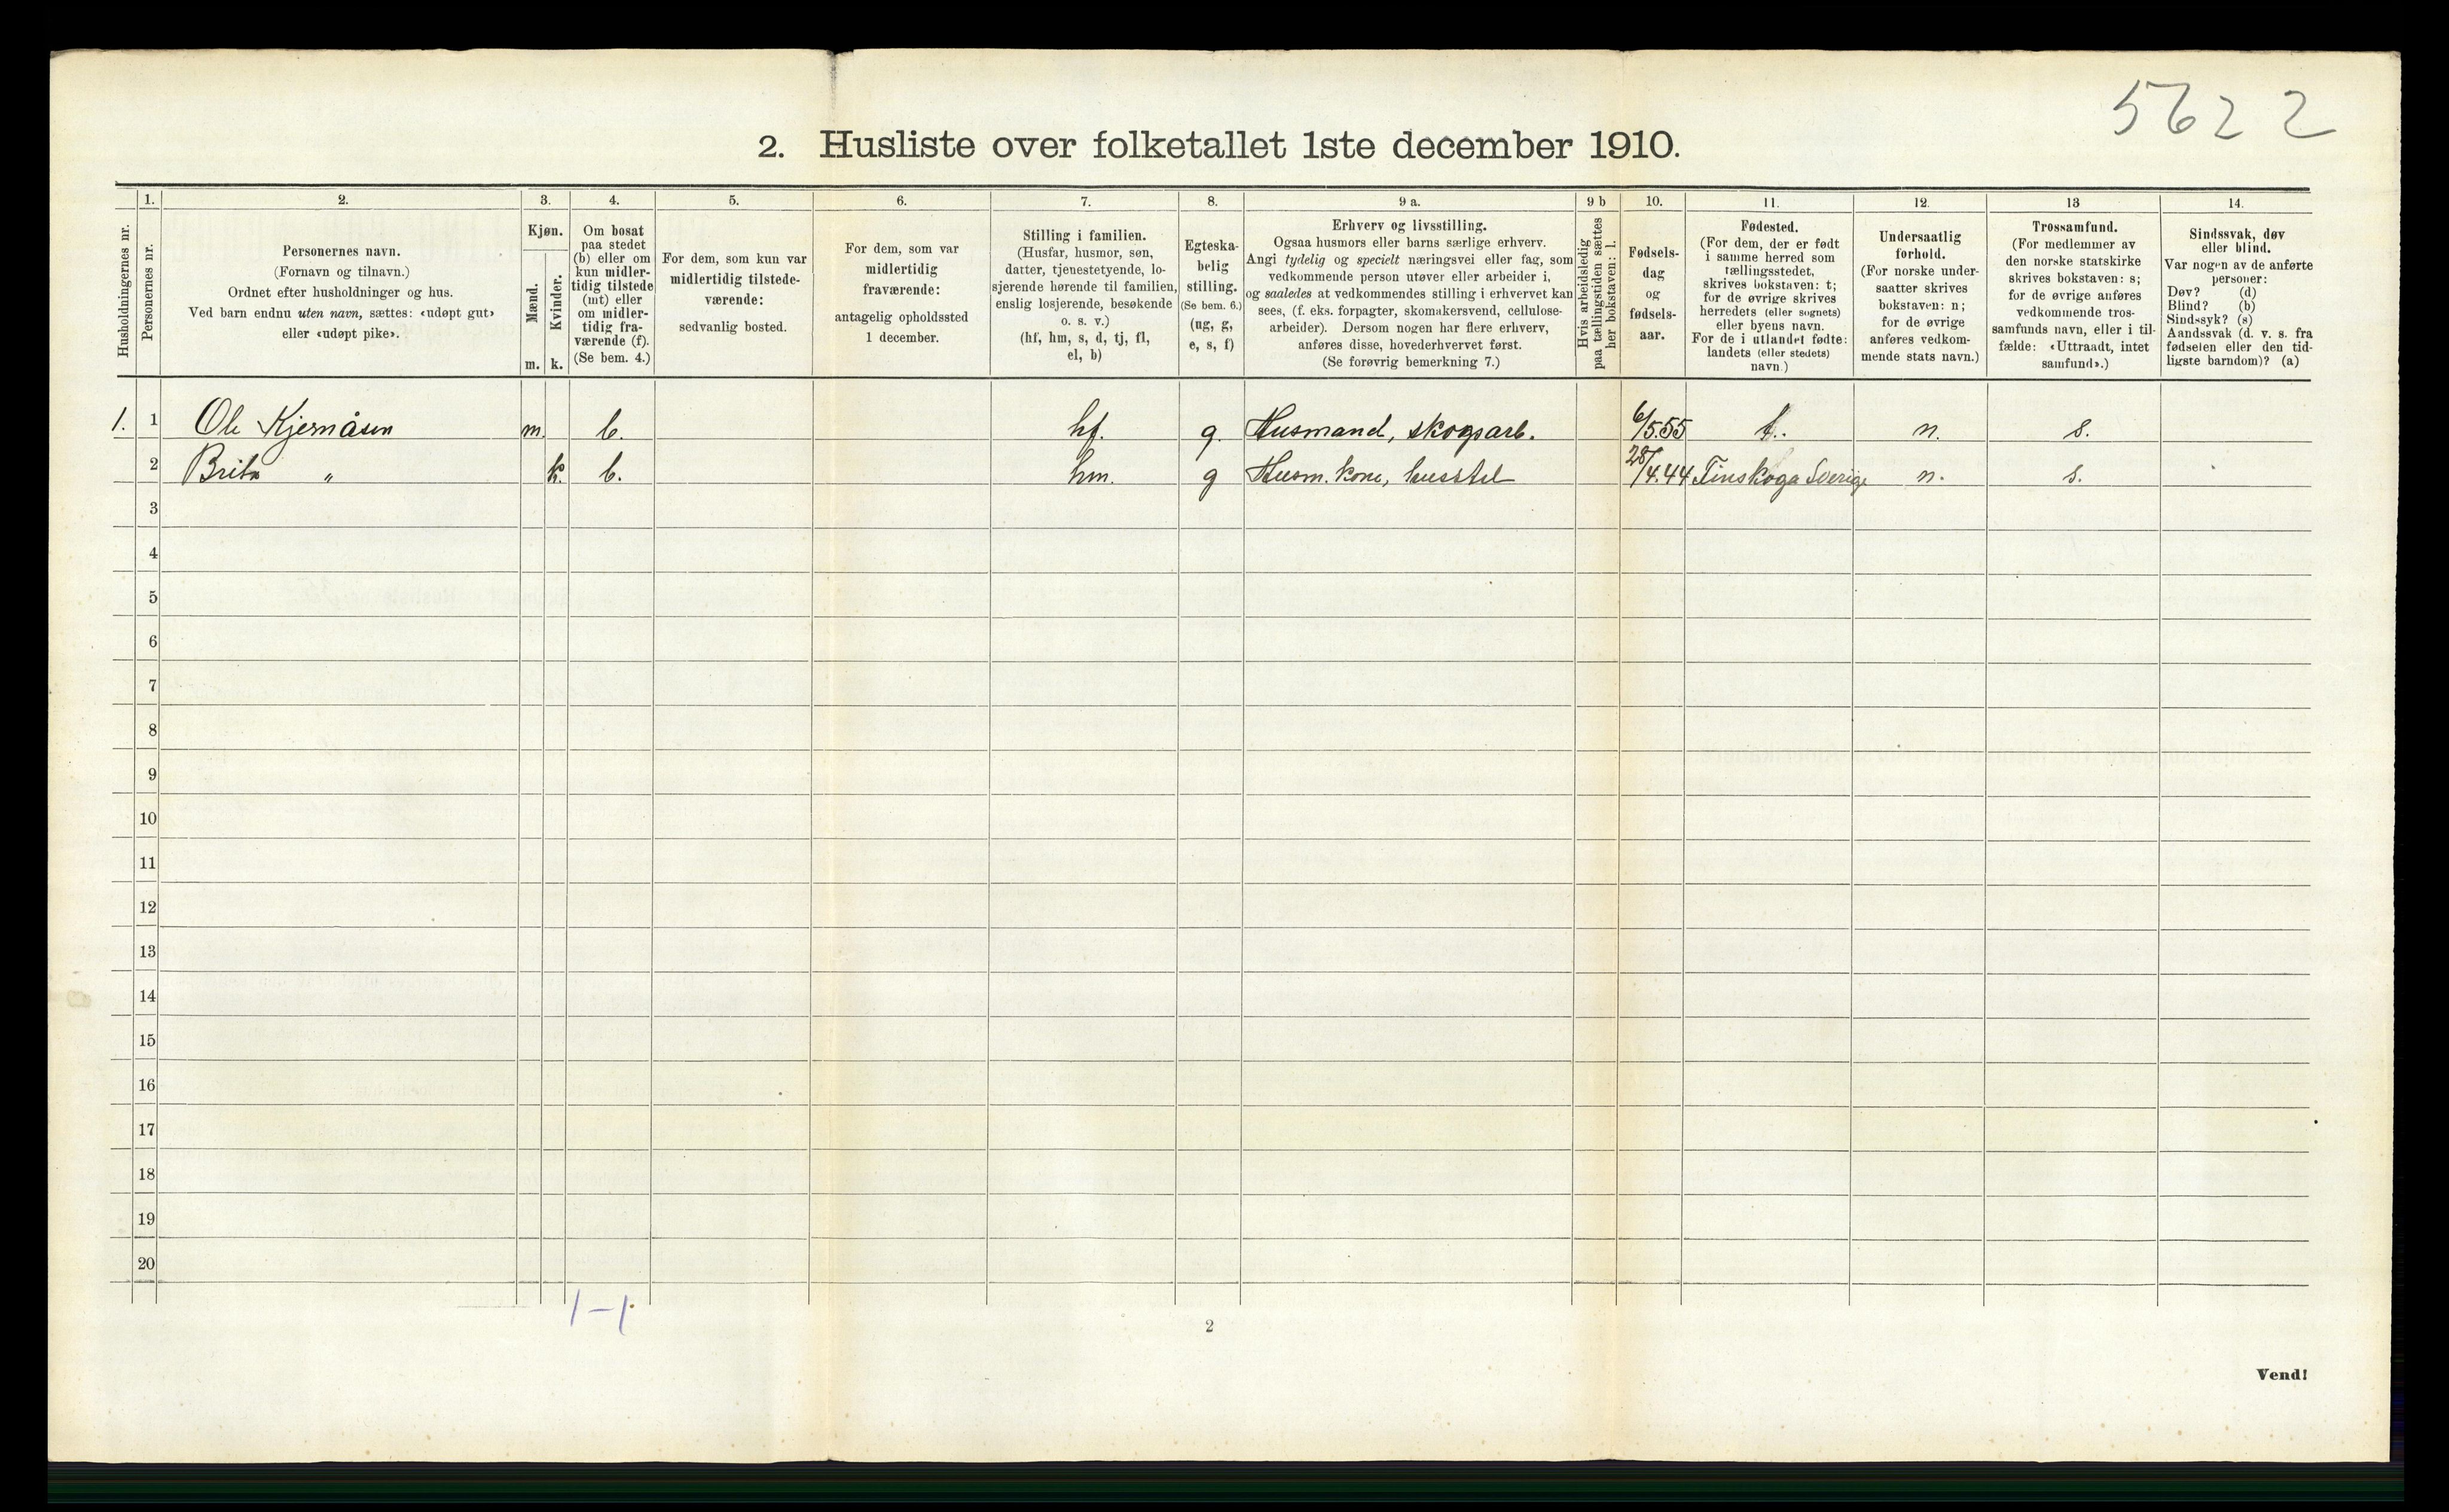 5622
2. Husliste over folketallet 1ste december 1910.
Husholdningernes nr.
1.
Personernes nr.
2.
Personernes navn.
(Fornavn og tilnavn.)
Ordnet efter husholdninger og hus.
Ved barn endnu uten navn, sættes: «udøpt gut»
eller «udøpt pike».
3.
Kjøn.
Mænd.
Kvinder.
m. k.
4.
Om bosat
paa stedet
(b) eller om
kun midler-
tidig tilstede
(mt) eller
om midler-
tidig fra-
værende (f).
(Se bem. 4.)
5.
For dem, som kun var
midlertidig tilstede-
værende:
sedvanlig bosted.
6.
For dem, som var
midlertidig
fraværende:
antagelig opholdssted
1 december.
7.
Stilling i familien.
(Husfar, husmor, søn,
datter, tjenestetyende, lo-
sjerende hørende til familien,
enslig losjerende, besøkende
o. s. v.)
(hf, hm, s, d, tj, fl,
el, b)
8.
Egteska-
belig
stilling.
(Se bem. 6.)
(ug, g,
e, s, f)
9 a.
Erhverv og livsstilling.
Ogsaa husmors eller barns særlige erhverv.
Angi tydelig og specielt næringsvei eller fag, som
vedkommende person utøver eller arbeider i,
og saaledes at vedkommendes stilling i erhvervet kan
sees, (f. eks. forpagter, skomakersvend, cellulose-
arbeider). Dersom nogen har flere erhverv,
anføres disse, hovederhvervet først.
(Se forøvrig bemerkning 7.)
9 b
Hvis arbeidsledig
paa tællingstiden sættes
her bokstaven: l.
10.
Fødsels-
dag
og
fødsels-
aar.
11.
Fødested.
(For dem, der er født
i samme herred som
tællingsstedet,
skrives bokstaven: t;
for de øvrige skrives
herredets (eller sognets)
eller byens navn.
For de i utlandet fødte:
landets (eller stedets)
navn.)
12.
Undersaatlig
forhold.
(For norske under-
saatter skrives
bokstaven: n;
for de øvrige
anføres vedkom-
mende stats navn.)
13
Trossamfund.
(For medlemmer av
den norske statskirke
skrives bokstaven: s;
for de øvrige anføres
vedkommende tros-
samfunds navn, eller i til-
fælde: «Uttraadt, intet
samfund».)
14.
Sindssvak, døv
eller blind.
Var nogen av de anførte
personer:
Døv? (d)
Blind? (b)
Sindssyk? (s)
Aandssvak (d. v. s. fra
fødselen eller den tid-
ligste barndom)? (a)
1. 1 Ole Kjernåsen m. b. hf. g. Husmand, skogsarb. 6/5.55 t. n. s.
2 Brita " k. b. hm. g Husm. kone, husstel 28/4.44 Tinskoga Sverige n. s.
3
4
5
6
7
8
9
10
11
12
13
14
15
16
17
18
19
20
1-1
2
Vend!